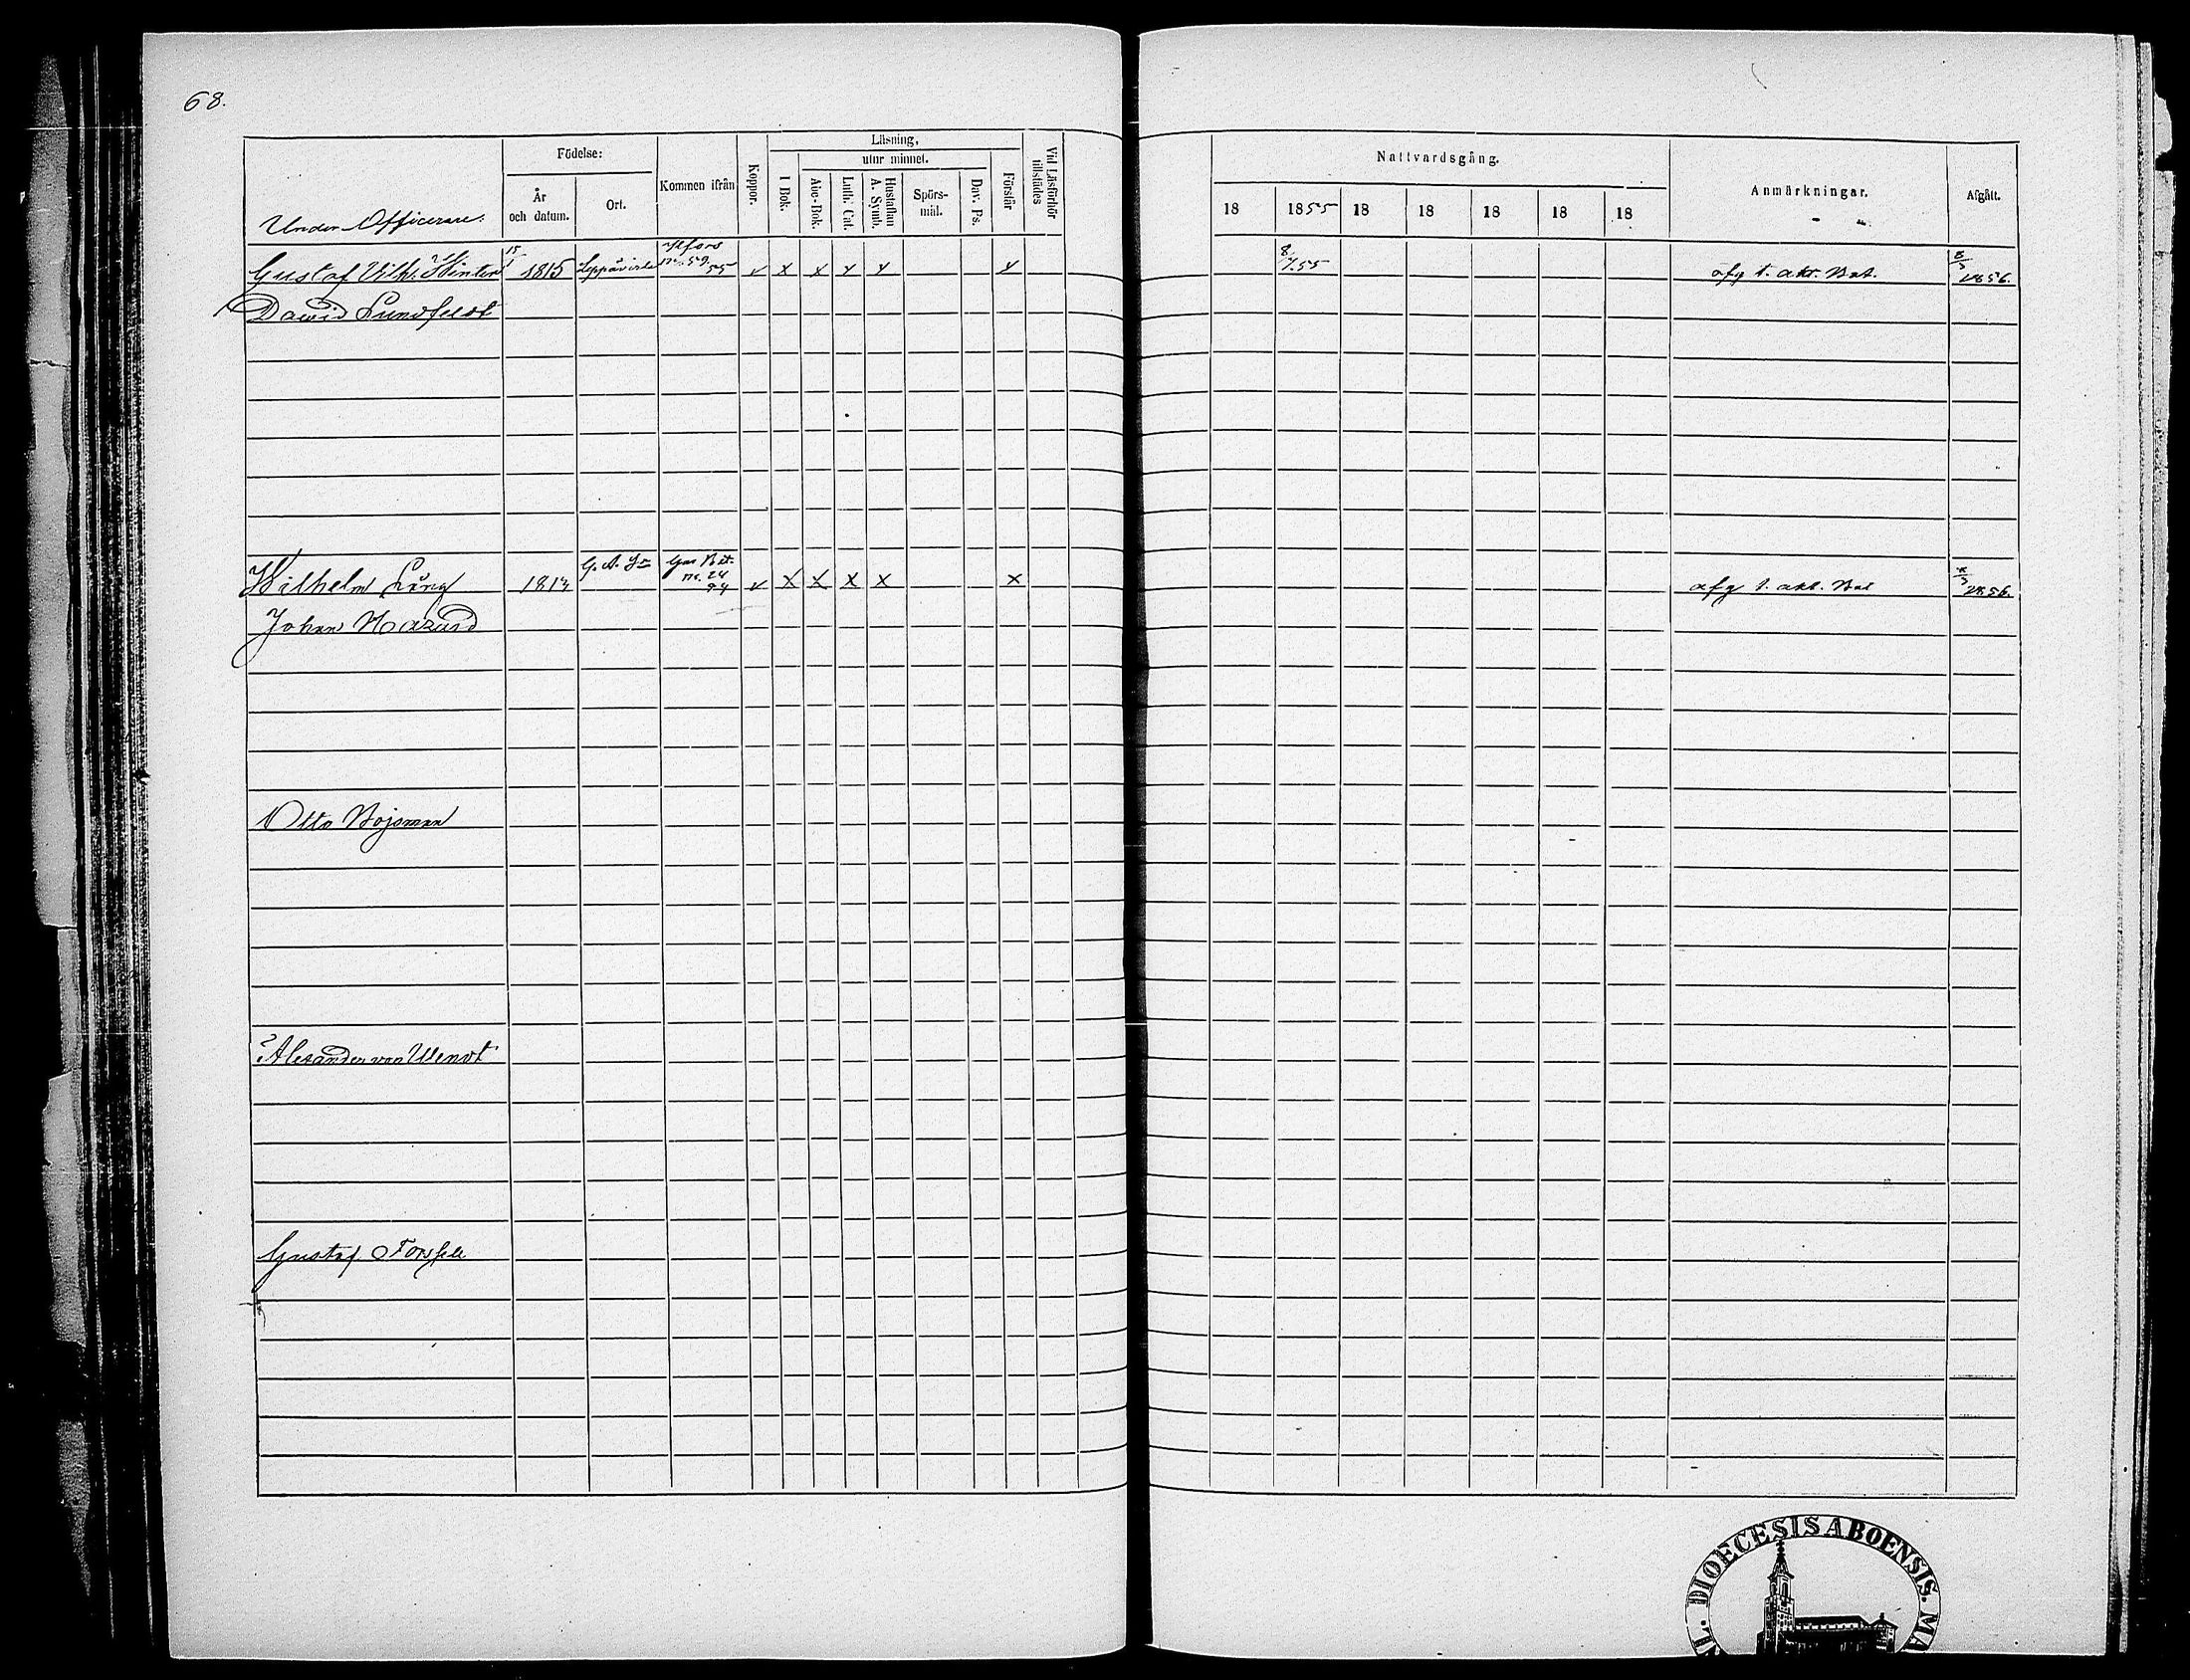 68.
Under Officerare.
Födelse:
År och datum.
Ort.
Kommen ifrån
Koppor.
Läsning,
I Bok.
utur minnet.
Abc-Bok.
Luth. Cat.
Hustaflan A. Symb.
Spörsmål.
Dav. Ps.
Förstår
Vid Läsförhör tillstädes
Nattvardsgång.
18 1855 18 18 18 18 18
Anmärkningar.
Afgått.
Gustaf Vilh. Winter 15/1 1815 Leppävirta Hfors 59 55 x x x x x 8/7 55 afg t. akt. Bat. 8/3 1856.
David Lundfeldt
Wilhelm Lång 1813 G. K. Gm Bat. no. 24 x x x x x afg t. akt. Bat 1856.
Johan
Otto Bojsman
Alexander von Wendt
Gustaf
DIOECESIS ABOENSIS. MA